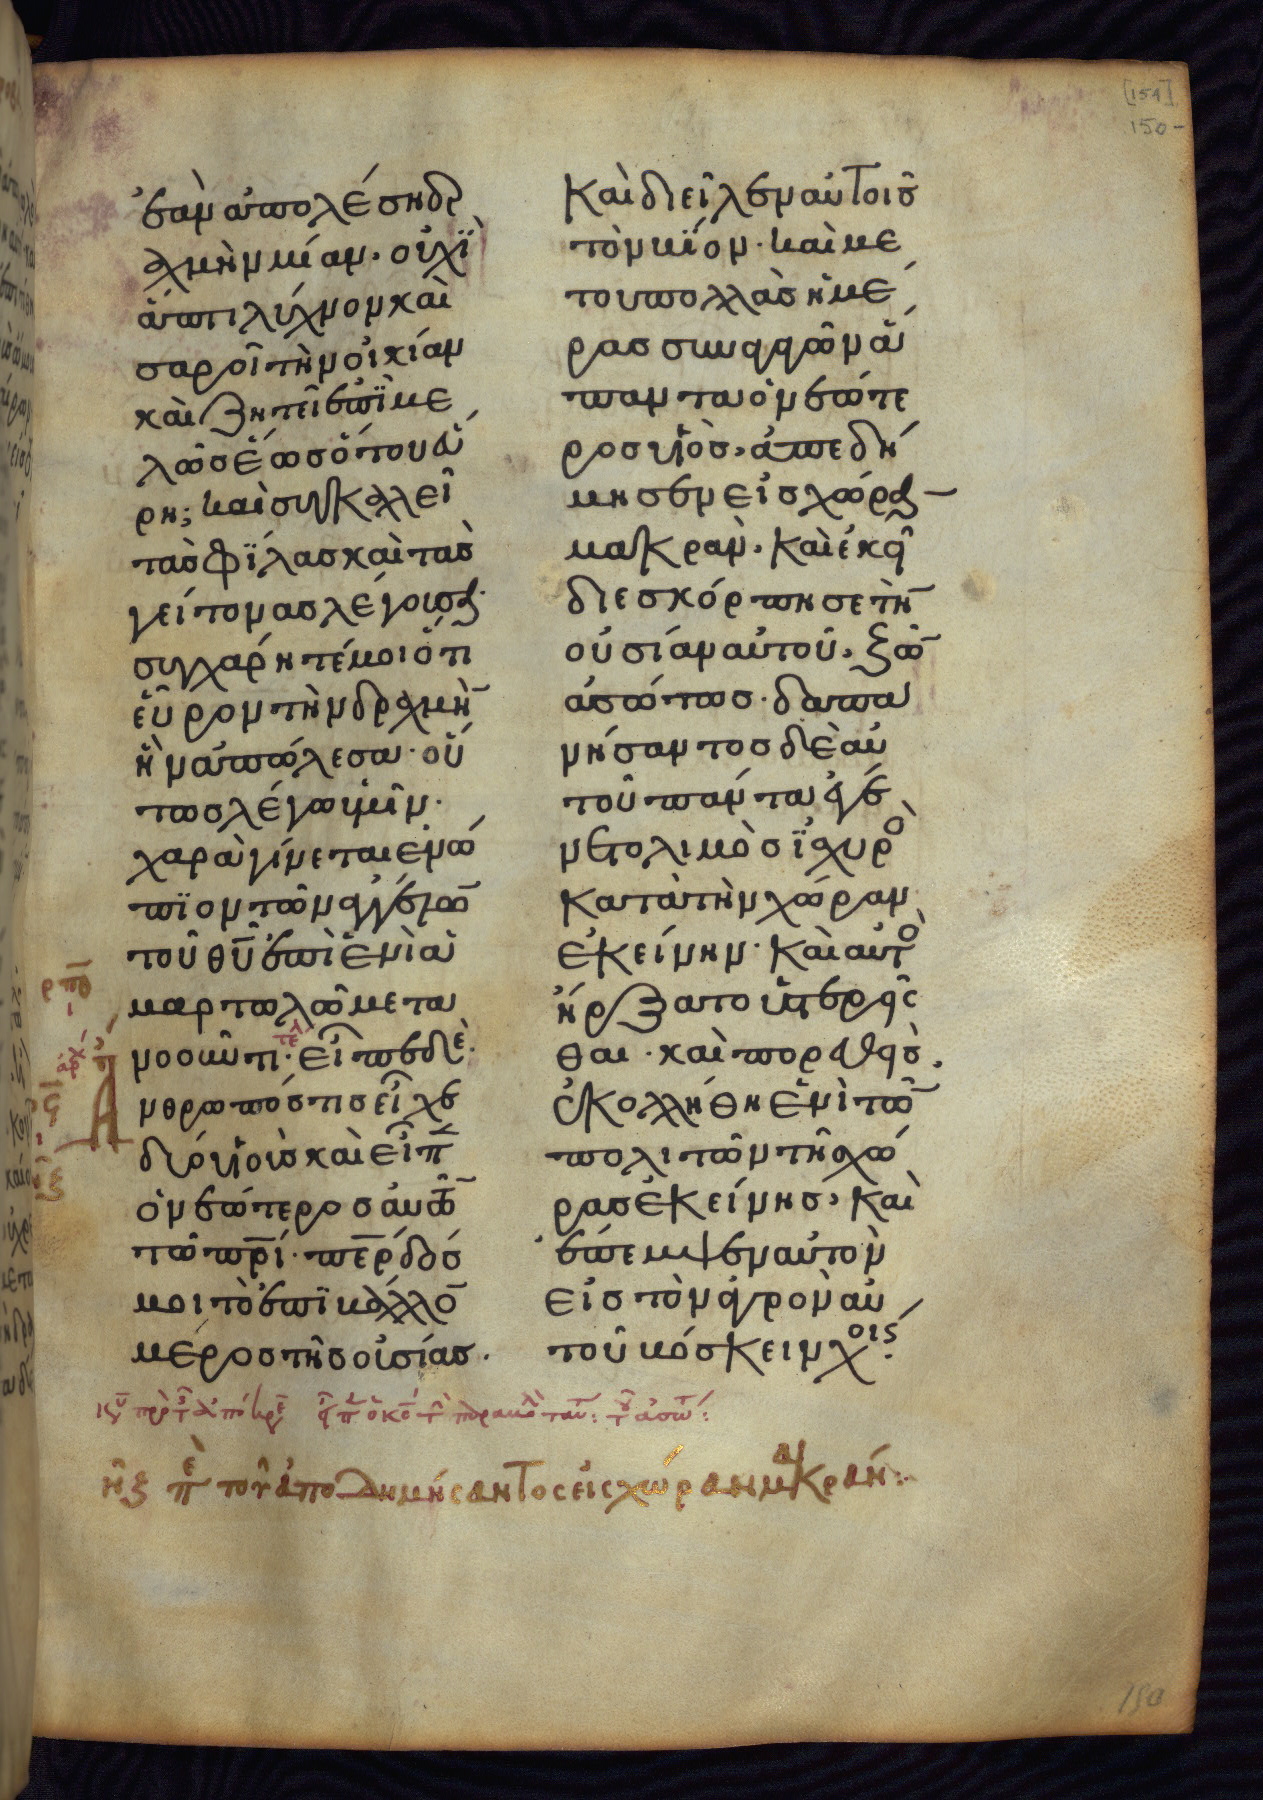 ἐὰν ἀπολέση δρ
αχμὴν μίαν· οὐχῒ
ἅπτι λύχνον καὶ
σαροῖ τὴν οἰκίαν
καὶ ζητεῖ ἐπϊμε
λῶσ ἕωσ ὅτου εὕ
ρη; καὶ συγκαλεῖ
τὰσ φΐλασ καὶ τὰσ
γείτονασ λέγουσα·
συγχαρητέ μοι ὅτι
εὗρον τὴν δραχμὴ̄
ἣν ἀπώλεσα· οὕ
τωσ λέγω ὑμῖν·
χαρὰ γίνεται ἐνώ
πϊον τῶν ἀγγέλω̄
τοῦ θῦ ἐπὶ ἑνὶ ἁ
μαρτωλῶ μετα
νοοῦντι· εἶπεν δὲ·
Ἄνθρωπόσ τισ εἶχε
δύο υἱοὺσ καὶ εἶπ̄
ὁ νεώτεροσ αὐτῶ̄
τῶ πρ̄ί· πε̄ρ δόσ
μοι τὸ ἐπϊβάλλο̄
μέροσ τῆσ οὐσίασ·
Καὶ διεῖλεν αὐτοῖσ
τὸν βΐον· καὶ με
τ οὐ πολλὰσ ἡμέ
ρασ συναγαγὼν ἅ
παντα ὁ νεώτε
ροσ υἱὸσ, ἀπεδή
μησεν εἰσ χώραν
μακράν· καὶ ἐκεῖ
διεσκόρπησε τὴ̄
οὐσίαν αὐτοῦ, ζῶ̄
ἀσώτωσ· δαπα
νήσαντοσ δὲ αὐ
τοῦ πάντα ἐγέ
νετο λιμὸσ ϊσχυρὸ
κατὰ τὴν χώραν
ἐκείνην· καὶ αὐτὸ
ἤρξατο ὑστερεῖσ
θαι· καὶ πορευθεὶσ,
ἐκολλήθη ἑνὶ τῶ̄
πολιτῶν τῆσ χώ
ρασ ἐκείνησ, καὶ
ἔπεμψεν αὐτὸν
εἰσ τὸν ἀγρὸν αὐ
τοῦ βόσκειν χοίρς·
τοῦ ἀποδημήσαντος εἰς χώραν μακράν:
[151]
150
150